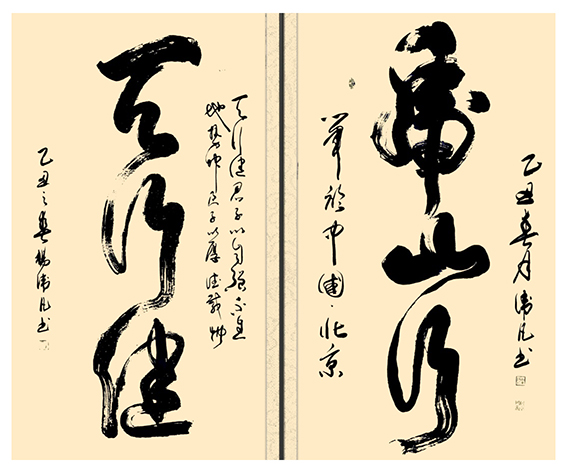 乙丑春月凡书
虎山行
笔於中國北京
天行健君子以自强不息
地势坤君子以厚德载物
天行健
乙丑之春杨凡书